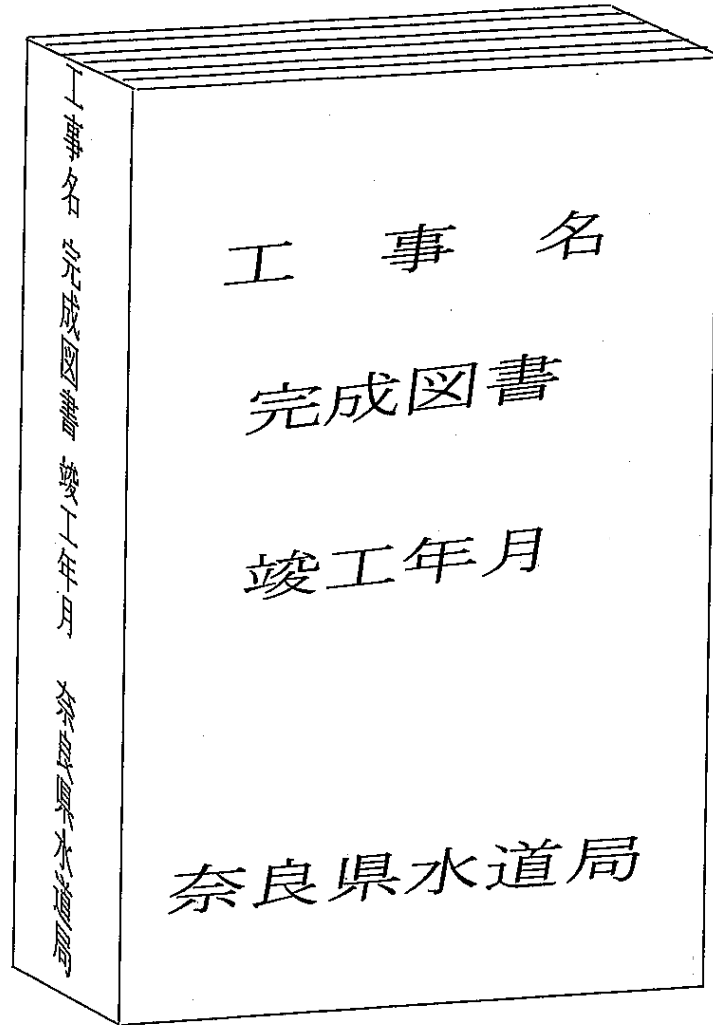 工事名 完成図書 竣工年月 奈良県水道局
工事名
完成図書
竣工年月
奈良県水道局